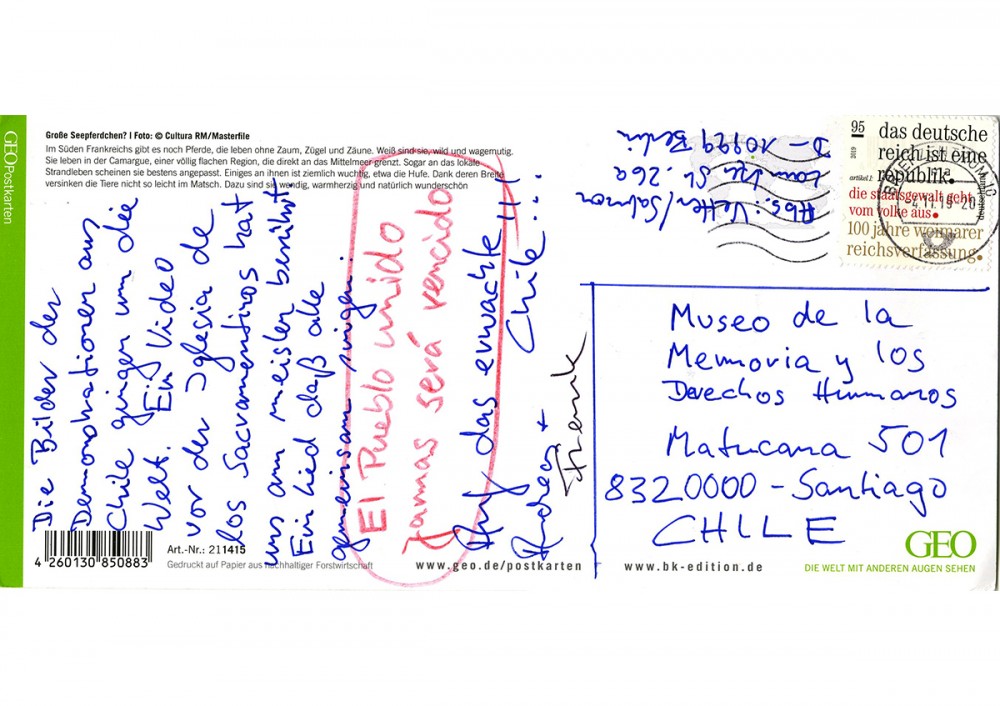 GEOPostkarten
Große Seepferdchen? I Foto: © Cultura RM/Masterfile
Im Süden Frankreichs gibt es noch Pferde, die leben ohne Zaum, Zügel und Zäune. Weiß sind sie, wild und wagemutig.
Sie leben in der Camargue, einer völlig flachen Region, die direkt an das Mittelmeer grenzt. Sogar an das lokale
Strandleben scheinen sie bestens angepasst. Einiges an ihnen ist ziemlich wuchtig, etwa die Hufe. Dank deren Breite
versinken die Tiere nicht so leicht im Matsch. Dazu sind sie wendig, warmherzig und natürlich wunderschön
Die Bilder der
Demonstrationen aus
Chile gingen um die
Welt. Ein Video
vor der Iglesia de
los Sacramentinos hat
uns am meisten berührt
Ein Lied daß alle
gemeinsam singen:
El Pueblo unido
Jamas será vencido
Auf das erwachte
Chile...
Andrea +
Frank
4 260130 850883
Art.-Nr.: 211415
Gedruckt auf Papier aus nachhaltiger Forstwirtschaft
www.geo.de/postkarten
Abs.: Vetter/Salmon
Str. 26a
D-10999 Berlin
95
2019
das deutsche
reich ist eine
artikel 1 republik.
die staatsgewalt geht
vom volke aus.
100 jahre weimarer
reichsverfassung.
Museo de la
Memoria y los
Derechos Humanos
Matucana 501
8320000 - Santiago
CHILE
www.bk-edition.de
GEO
DIE WELT MIT ANDEREN AUGEN SEHEN